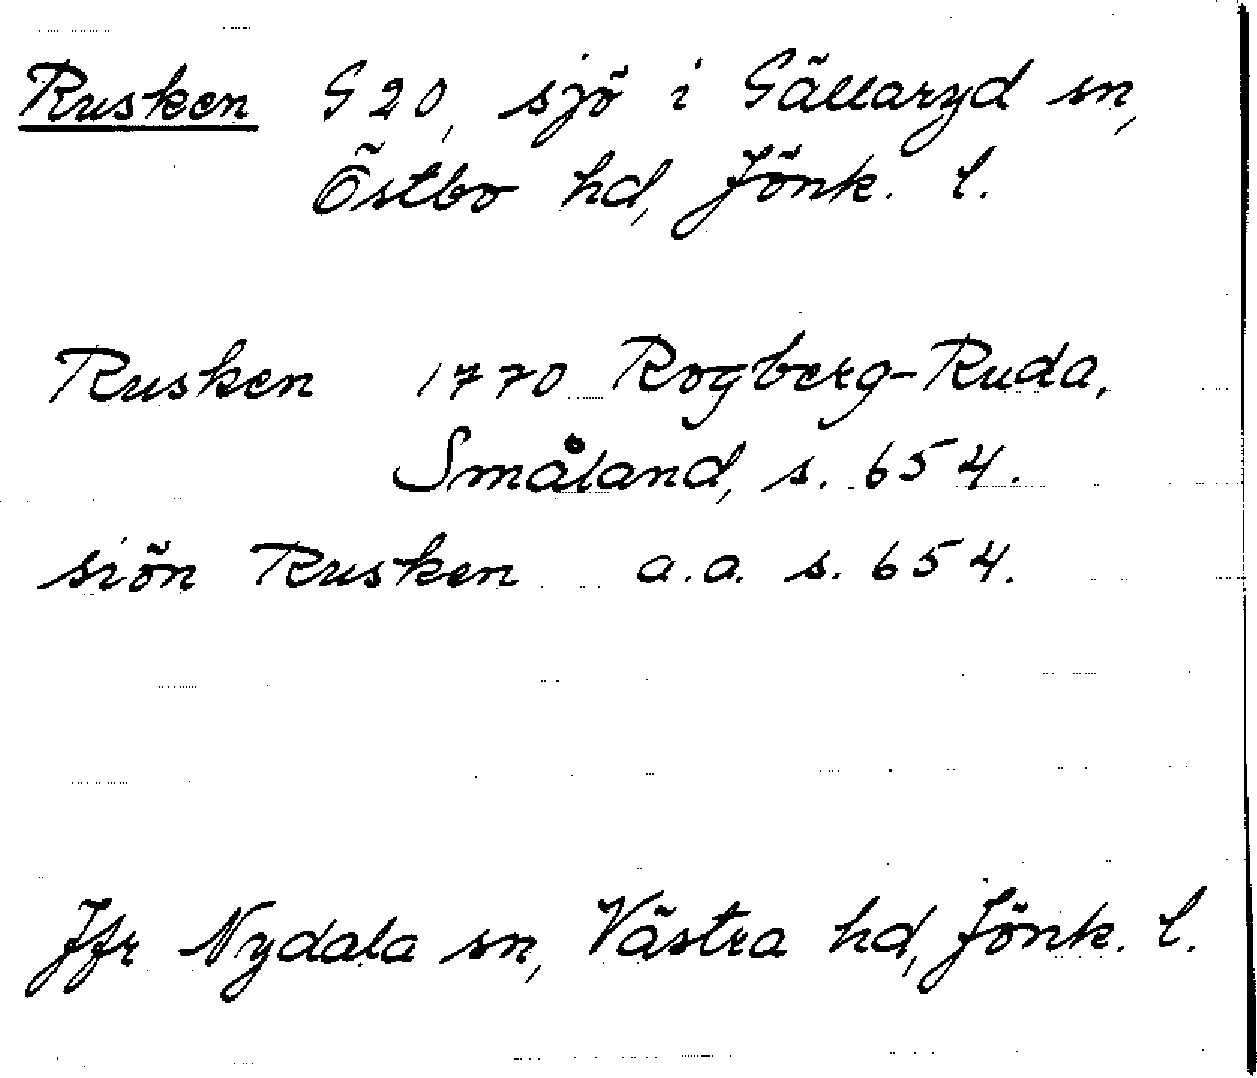 Rusken G20, sjö i Gällaryd sn,
Östbo hd, Jönk. l.
Rusken 1770 Rogberg-Ruda,
Småland, s. 654.
siön Rusken a.a. s. 654.
Jfr Nydala sn, Västra hd, Jönk. l.